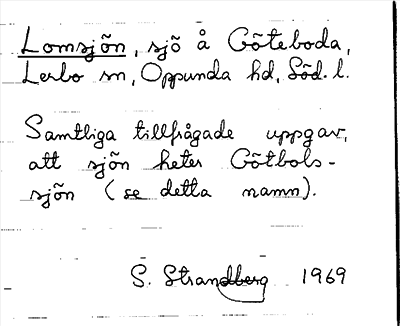 Lomsjön, sjö å Göteboda,
Lerbo sn, Oppunda hd, Söd. l.
Samtliga tillfrågade uppgav,
att sjön heter Götbols-
sjön (se detta namn).
S. Strandberg 1969